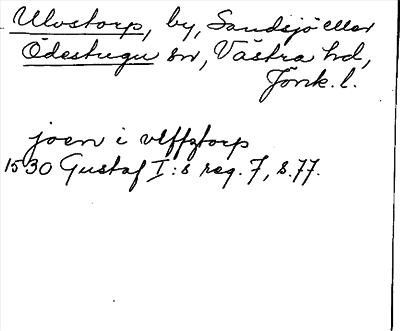 Ulvstorp, by, Sandsjö eller
Ödestugu sn, Västra hd,
Jönk. l.
joen i vlffztorp
1530 Gustaf I:s reg. 7, s. 77.